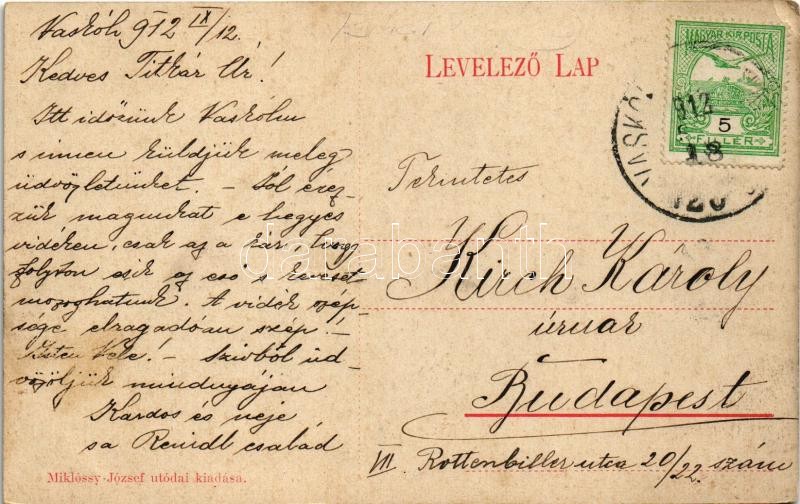 Vaskóh 912 IX/12.
Kedves Titkár Úr!
Itt időzünk Vaskóhn
s innen küldjük meleg
üdvözletünket. – Jól érez-
zük magunkat e hegyes
vidéken, csak az a kár, hogy
folyton esik az eső s keveset
mozoghatunk. A vidék szép-
sége elragadóan szép! –
Isten Vele! – Szivből üd-
vözöljük mindnyájan
Kardos és neje
sa Reindl család
Miklóssy József utódai kiadása.
LEVELEZŐ LAP
MAGYAR KIR. POSTA
5
FILLÉR
VASKÓ
912
18
Tekintetes
Kirch Károly
úrnak
Budapest
VII. Rottenbiller utca 20/22. szám
darabanth